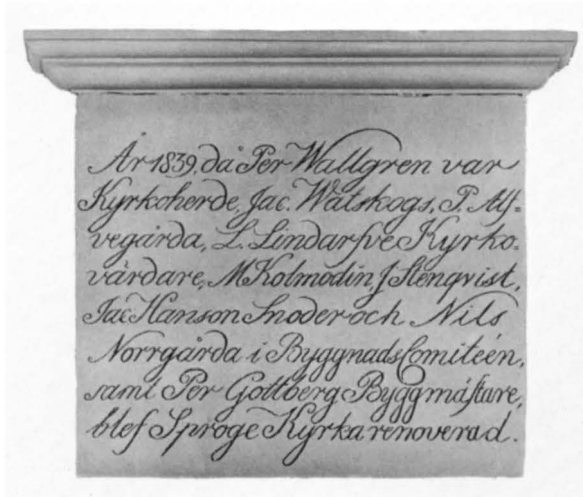 År 1839, då Per Wallgren var
Kyrkoherde, Jac. Walskogs, P. Alf-
vegårda, L. Lindarfve Kyrko-
värdare, M Kolmodin, J Stenqvist,
Jac Hanson Snoder och Nils
Norrgårda i Byggnads Comitéen,
samt Per Gottberg Byggmästare,
blef Sproge Kyrka renoverad.